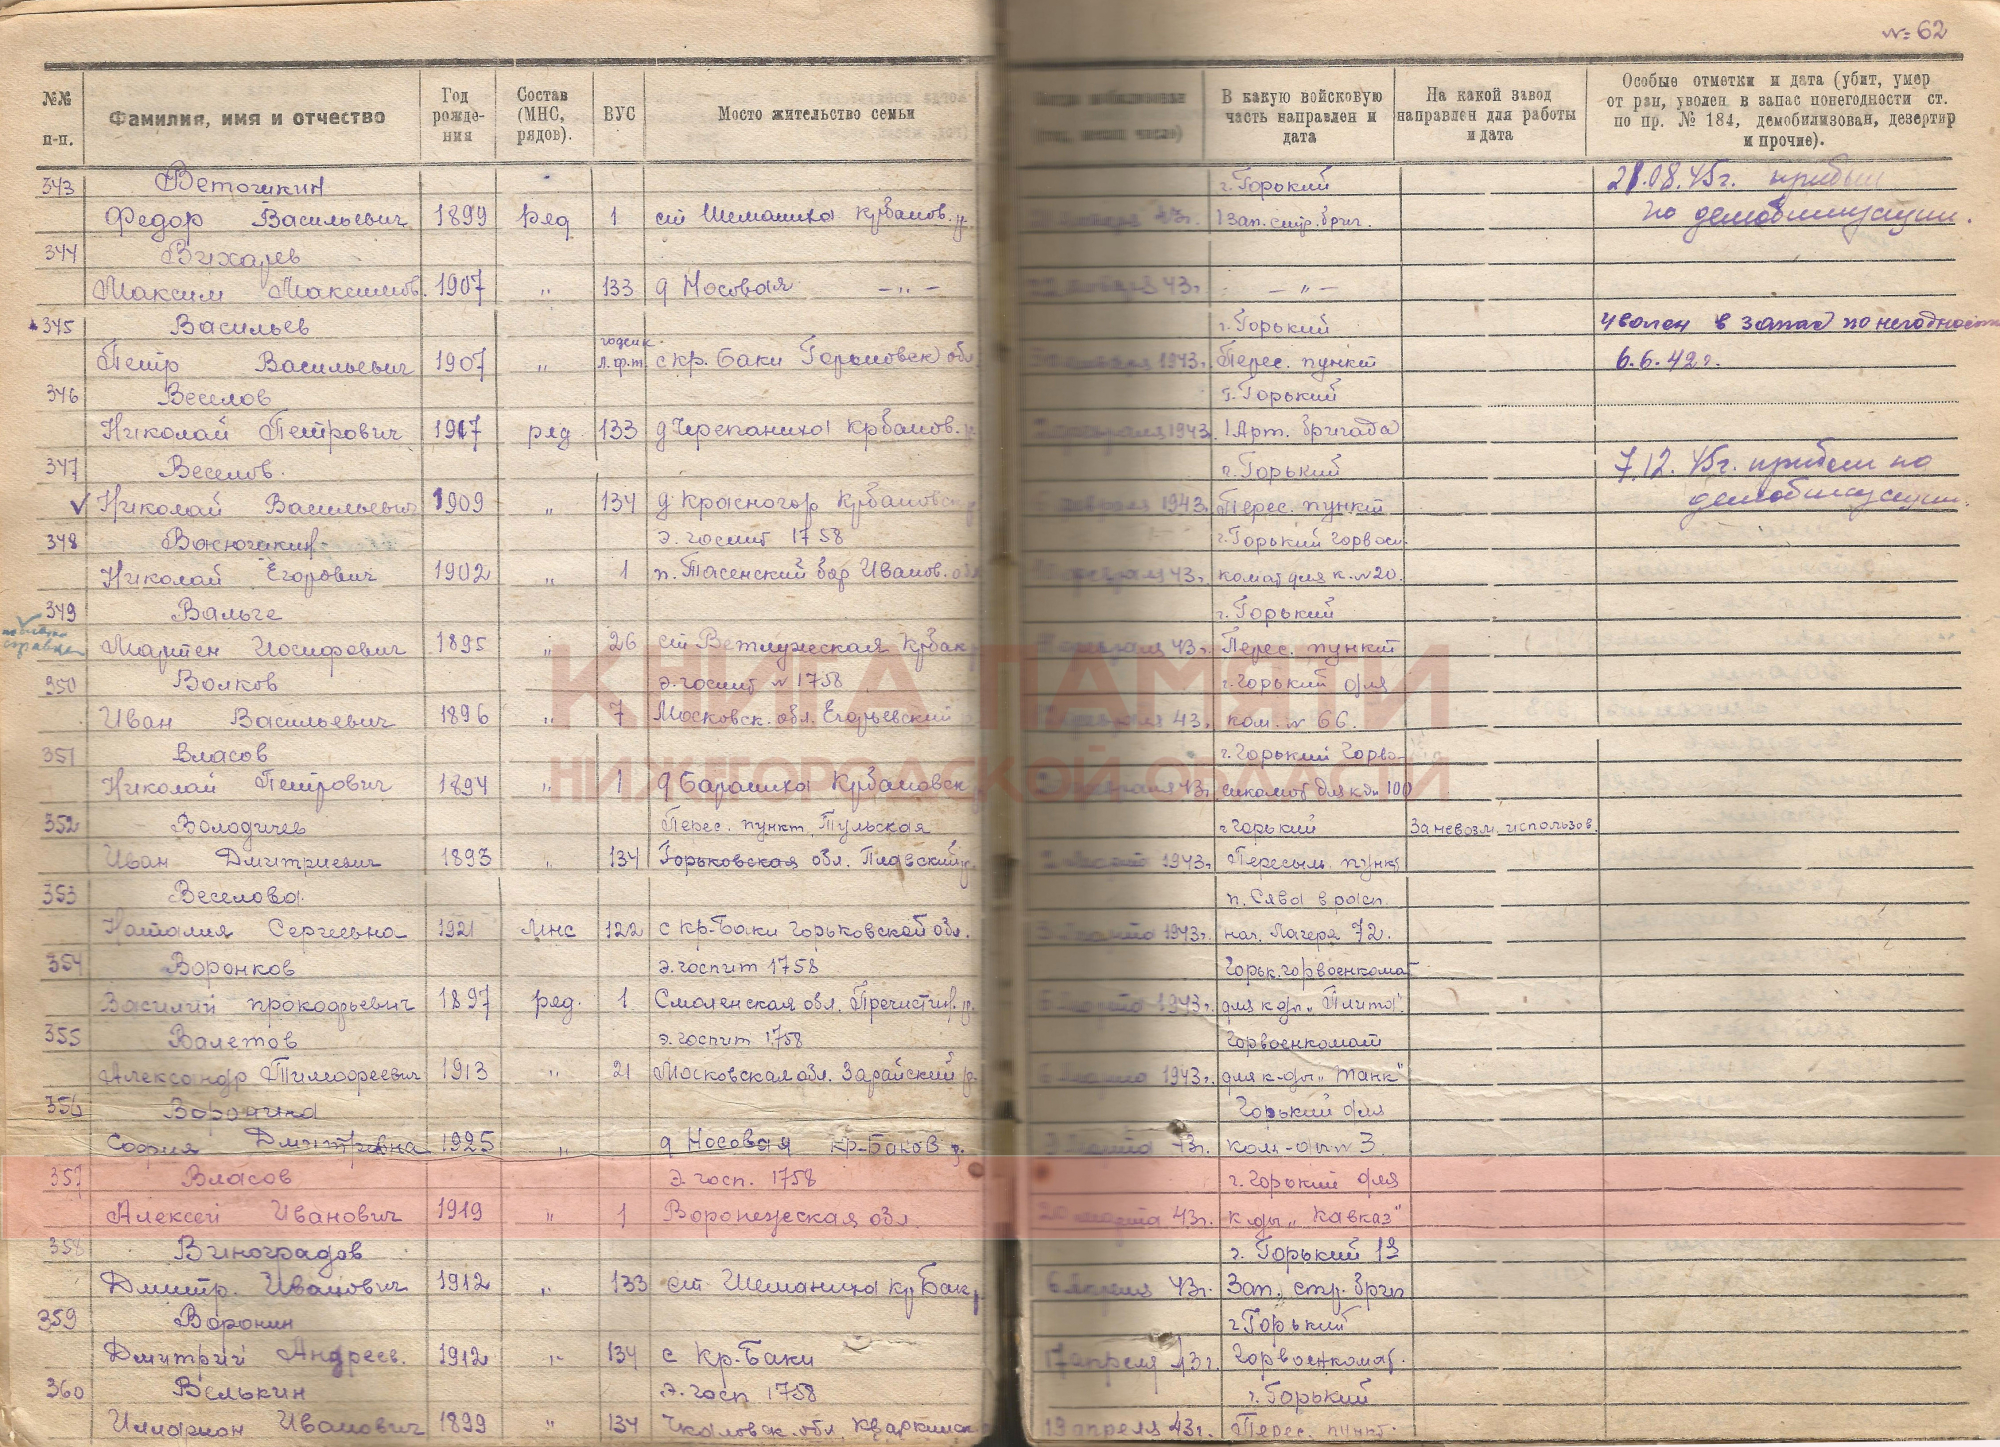 № 62
№№ п-п. Фамилия, имя и отчество Год рожде- ния Состав (МНС, рядов). ВУС Место жительство семьи В какую войсковую часть направлен и дата На какой завод направлен для работы и дата Особые отметки и дата (убит, умер от ран, уволен в запас понегодности ст. по пр. № 184, демобилизован, дезертир и прочие).
343 Ветошкин г. Горький 21.08.45г. прибыл
Федор Васильевич 1899 ряд 1 ст Шеманиха Крбаков. р. 43г. 1 Зап. стр. бриг. по демобилизации.
344 Вихарев
Максим Максимов. 1907 „ 133 д Носовая -„- 43г. -„-
345 Васильев г. Горький уволен в запас по негодности
Петр Васильевич 1907 „ с кр. Баки Горьковск обл 1943г. Перес. пункт 6.6.42г.
346 Веселов г. Горький
Николай Петрович 1917 ряд 133 д Черепаниха Крбаков. р. февраля 1943 1 Арт. бригада
347 Веселов. г. Горький 7.12.45г. прибыл по
Николай Васильевич 1909 „ 134 д Красногор Крбаковск февраля 1943 Перес. пункт демобилизации.
348 э. госпит 1758 г. Горький Горвоен
Николай Егорович 1902 „ 1 п. бор Иванов. обл февраля 43г. комат для к. №20.
349 Вальге г. Горький
Мартен Иосифович 1895 „ 26 ст Ветлужская Крбак февраля 43г. Перес. пункт
350 Волков э. госпит № 1758 г. Горький для
Иван Васильевич 1896 „ 7 Московск. обл. Егорьевский февраля 43г. ком. № 66.
351 Власов г. Горький Горво-
Николай Петрович 1894 „ 1 д Бараниха Крбаковск февраля 43г. 100
352 Володичев Перес. пункт Тульская г Горький За невозм. использов.
Иван Дмитриевич 1893 „ 134 Горьковская обл. марта 1943г. Пересыл. пункт
353 Веселова п. Сява в расп.
Наталия Сергеевна 1921 мнс 122 с кр-Баки горьковской обл. марта 1943г. нач. Лагеря 72.
354 Воронков э. госпит 1758 Горьк. горвоенкомат
Василий прокофьевич 1897 ряд. 1 Смоленская обл. Пречистин. р. марта 1943г. для к-ды „Плита"
355 Валетов э. госпит 1758 Горвоенкомат
Александр Тимофреевич 1913 „ 21 Московская обл. Зарайский р. марта 1943г. для к-ды „Танк"
356 Воронина Горький для
София Дмитревна 1925 „ д Носовая кр-Баков р. марта 43г. ком-ды № 3.
357 Власов э. госп. 1758 г. Горький для
Алексей Иванович 1919 „ 1 Воронежская обл. 20 марта 43г. к-ды „Кавказ"
358 Виноградов г. Горький 13
Дмитр. Иванович 1912 „ 133 ст Шеманиха кр Бак р 6 апреля 43г. Зап. стр. бриг
359 Воронин г Горький
Дмитрий Андреев. 1912 „ 134 с Кр-Баки 17 апреля 43г. Горвоенкомат.
360 Велькин э. госп 1758 г. Горький
Илларион Иванович 1899 „ 134 Чкаловск. обл. Кваркинск 19 апреля 43г. Перес. пункт.
КНИГА ПАМЯТИ
НИЖЕГОРОДСКОЙ ОБЛАСТИ